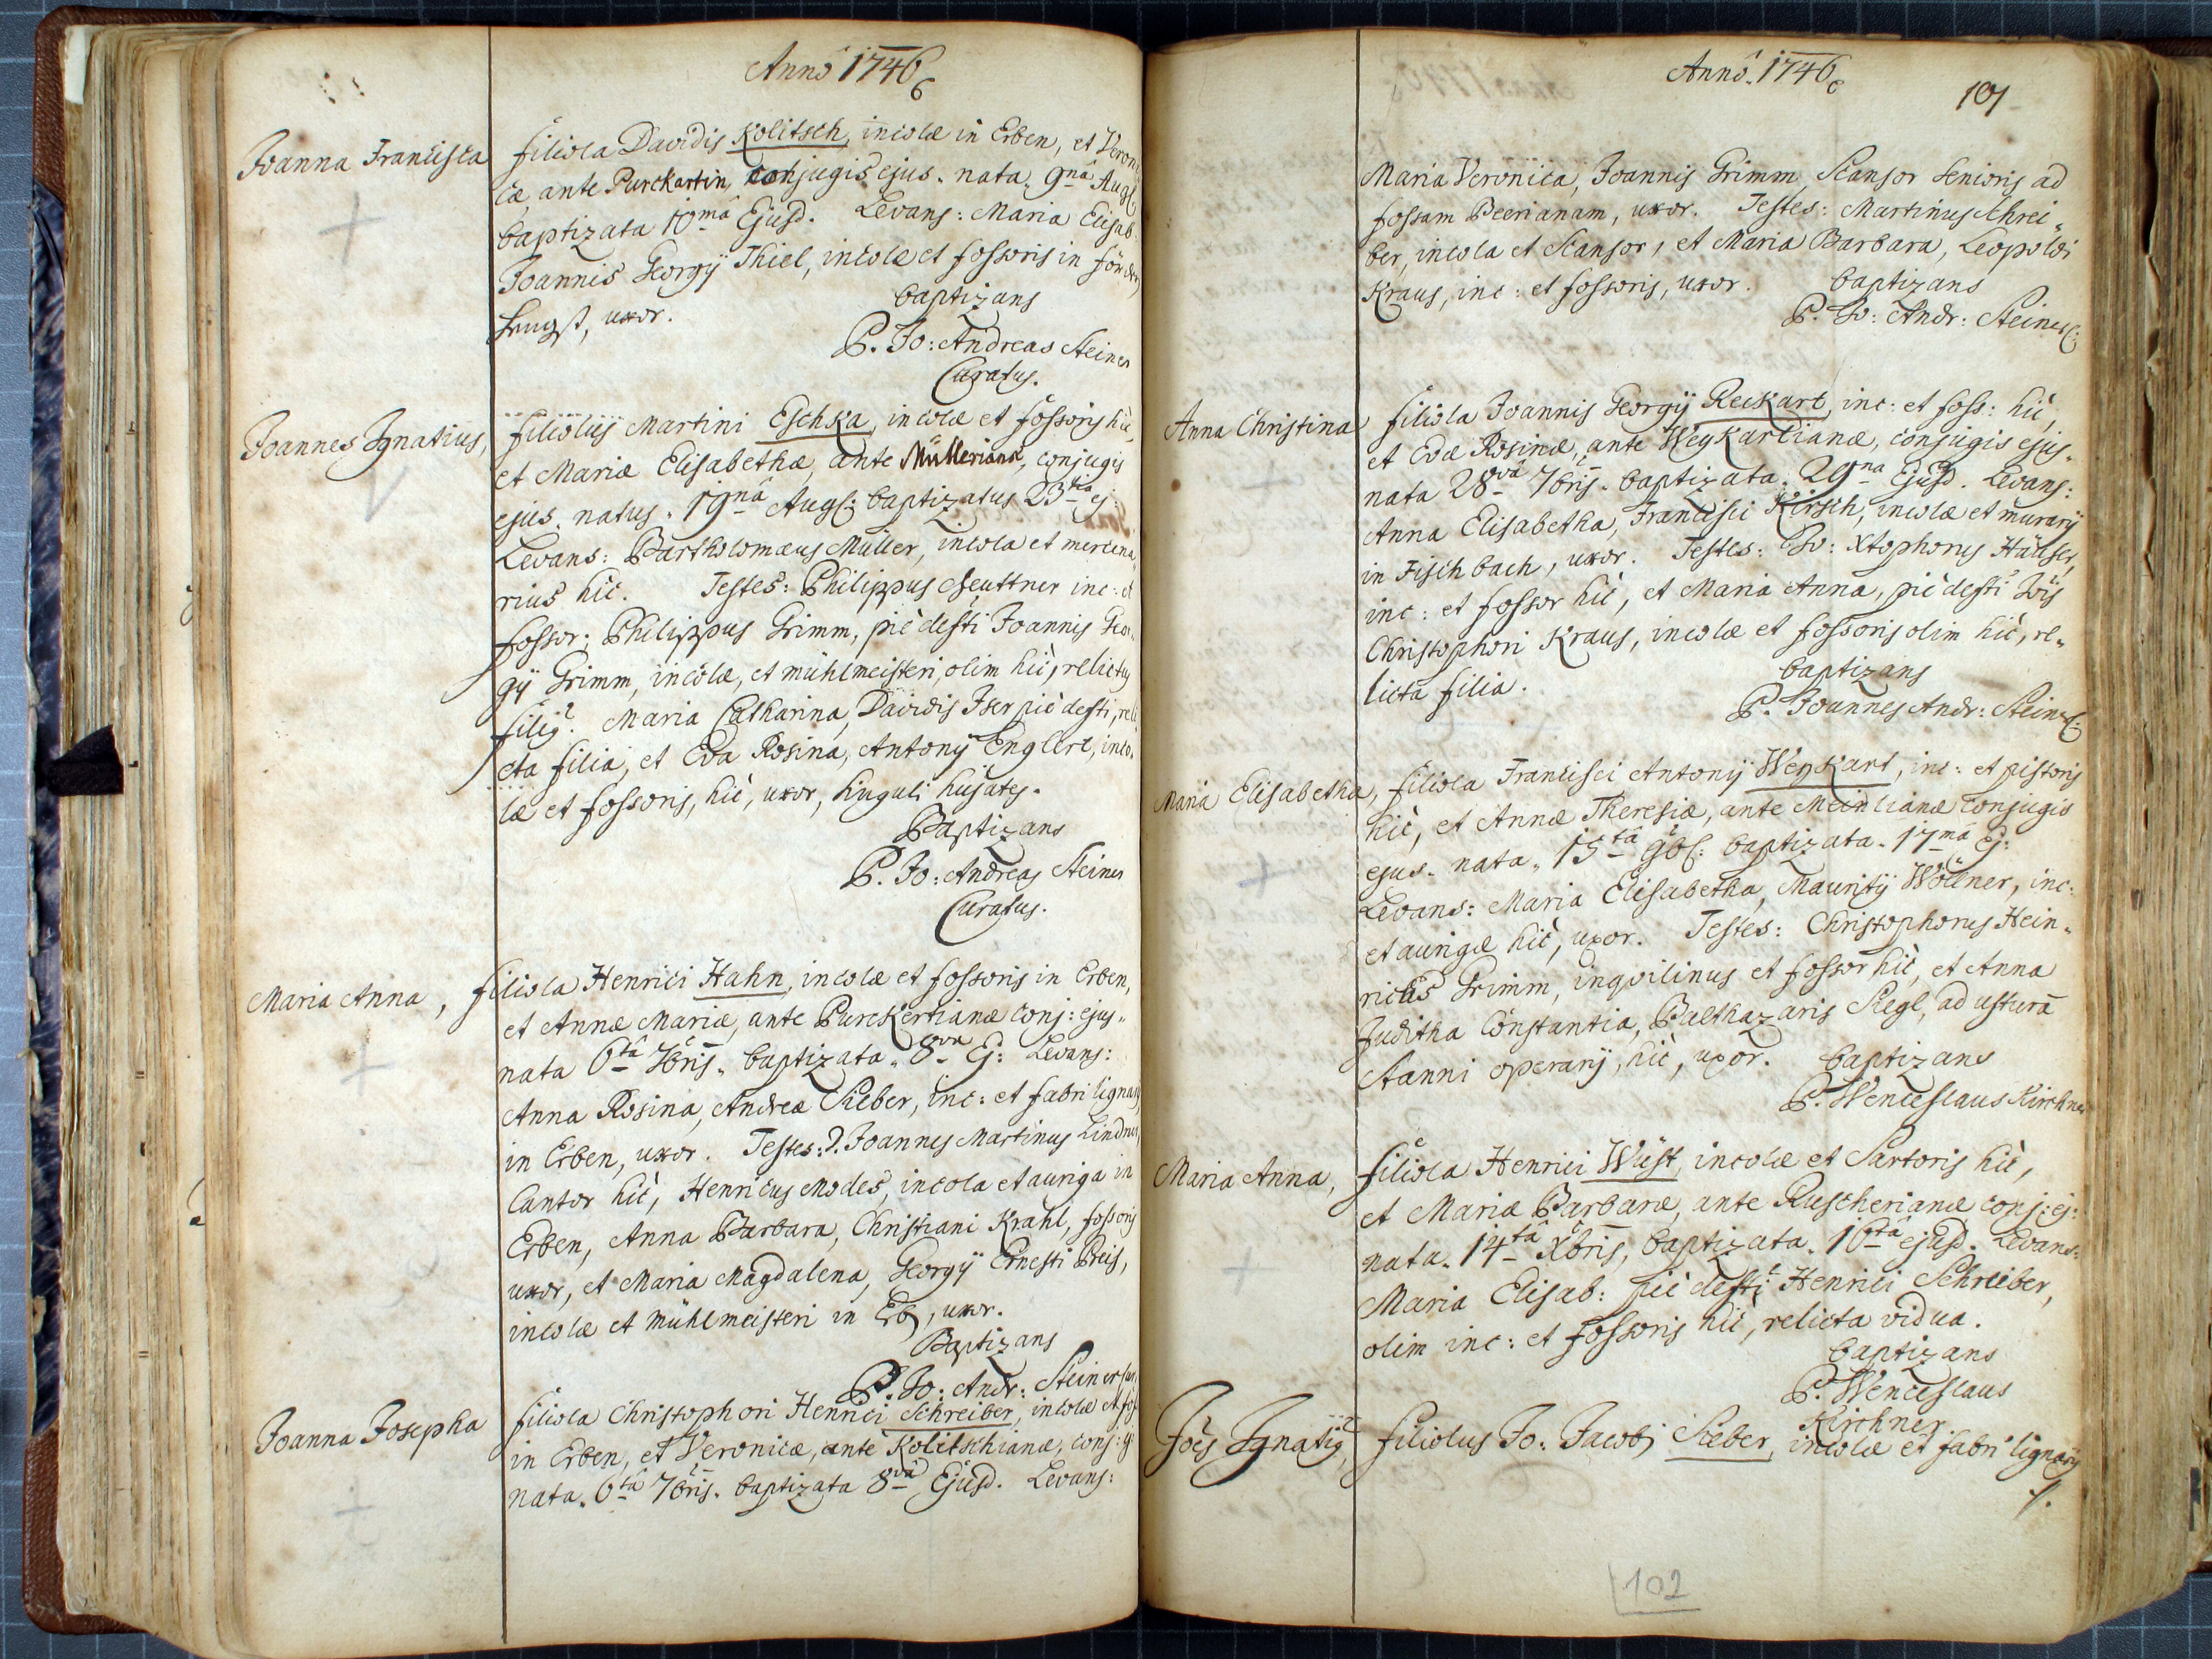 Anno 1746
Joanna Francisca filiola Davidis Kolitsch, incolæ in Erben, et Veroni
cæ, ante Purckartin, conjugis ejus. nata. 9nâ Aug:
baptizata 10mâ Ejusd. Levans: Maria Elisab:
Joannis Georgÿ Thiel, incolæ et fossoris in
uxor.
baptizans
P. Jo: Andreas Steiner
Curatus.
Joannes Ignatius, filiolus Martini Eschka, incolæ et fossoris hîc,
et Mariæ Elisabethæ, ante Müllerianæ, conjugis
ejus. natus. 19nâ Aug: baptizatus 23tia ej:
Levans: Bartholomæus Müller, incola et mercena„
rius hîc. Testes: Philippus Seuttner inc: et
fossor; Philippus Grimm, piè defti Joannis Geor„
gÿ Grimm, incolæ, et mühlmeisteri, olim hîc, relictus
filius. Maria Catharina, Davidis Iser piè defti, reli
cta filia, et Eva Rosina, Antonÿ Englert, inco„
læ et fossoris, hîc, uxor, singuli hujates.
Baptizans
P. Jo: Andreas Steiner
Curatus.
Maria Anna, filiola Henrici Hahn, incolæ et fossoris in Erben,
et Annæ Mariæ, ante Purckertianæ conj: ejus„
nata 6tâ 7bris. baptizata. 8va Ej: Levans:
Anna Rosina, Andreæ Sieber, inc: et fabri lignarÿ
in Erben, uxor. Testes: D. Joannes Martinus Lindner,
Cantor hîc, Henricus Modes, incola et auriga in
Erben, Anna Barbara, Christiani Krahl, fossoris
uxor, et Maria Magdalena, Georgÿ Ernesti Preis,
incolæ et mühlmeisteri in Erb, uxor.
Baptizans
P. Jo: Andr: Steiner
Joanna Josepha filiola Christophori Henrici Schreiber, incolæ et fos
in Erben, et Veronicæ, ante Kolitschianæ, conj: ej:
nata. 6tâ 7bris. baptizata 8vâ Ejusd. Levans:
Anno. 1746
101
Maria Veronica, Joannis Grimm, Scansor Senioris ad
fossam Peerianam, uxor. Testes: Martinus Schrei„
ber, incola et Scansor, et Maria Barbara, Leopoldi
Kraus, inc: et fossoris, uxor.
baptizans
P. Jo: Andr: Steiner C:
Anna Christina filiola Joannis Georgÿ Reckart, inc: et foss: hîc,
et Evæ Rosinæ, ante Weykartianæ, conjugis ejus„
nata 28vâ 7bris. baptizata. 29na Ejusd. Levans:
Anna Elisabetha, Francisci Kirsch, incolæ et murarÿ
in Fischbach, uxor. Testes: Jo: Xtophorus Häuser,
inc: et fossor hîc, et Maria Anna, piè defti Jois
Christophori Kraus, incolæ et fossoris olim hîc, re„
licta filia.
baptizans
P. Joannes Andr: Steiner C:
Maria Elisabetha, filiola Francisci Antonÿ Weykart, inc: et pistoris
hîc, et Annæ Theresiæ, ante Meinlianæ conjugis
ejus. nata. 15tâ 9b: baptizata. 17mâ ej:
Levans: Maria Elisabetha, Mauritÿ Wöllner, inc:
et aurigæ hîc, uxor. Testes: Christophorus Hein„
ricus Grimm, inquilinus et fossor hîc, et Anna
Juditha Constantia, Balthazaris Siegl, ad usturā
stanni operarÿ, hîc, uxor.
baptizans
P. Wenceslaus Kirchner
Maria Anna, filiola Henrici Wüst, incolæ et Sartoris hîc,
et Mariæ Barbaræ, ante Ruscherianæ conj: ej:
nata. 14tâ Xbris, baptizata. 16tâ ejusd. Levans:
Maria Elisab: piè defti Henrici Schreiber,
olim inc: et fossoris hîc, relicta vidua.
baptizans
P. Wenceslaus
Kirchner
Joês Ignatius, filiolus Jo: Jacobi Sieber, incolæ et fabri lignarÿ
102